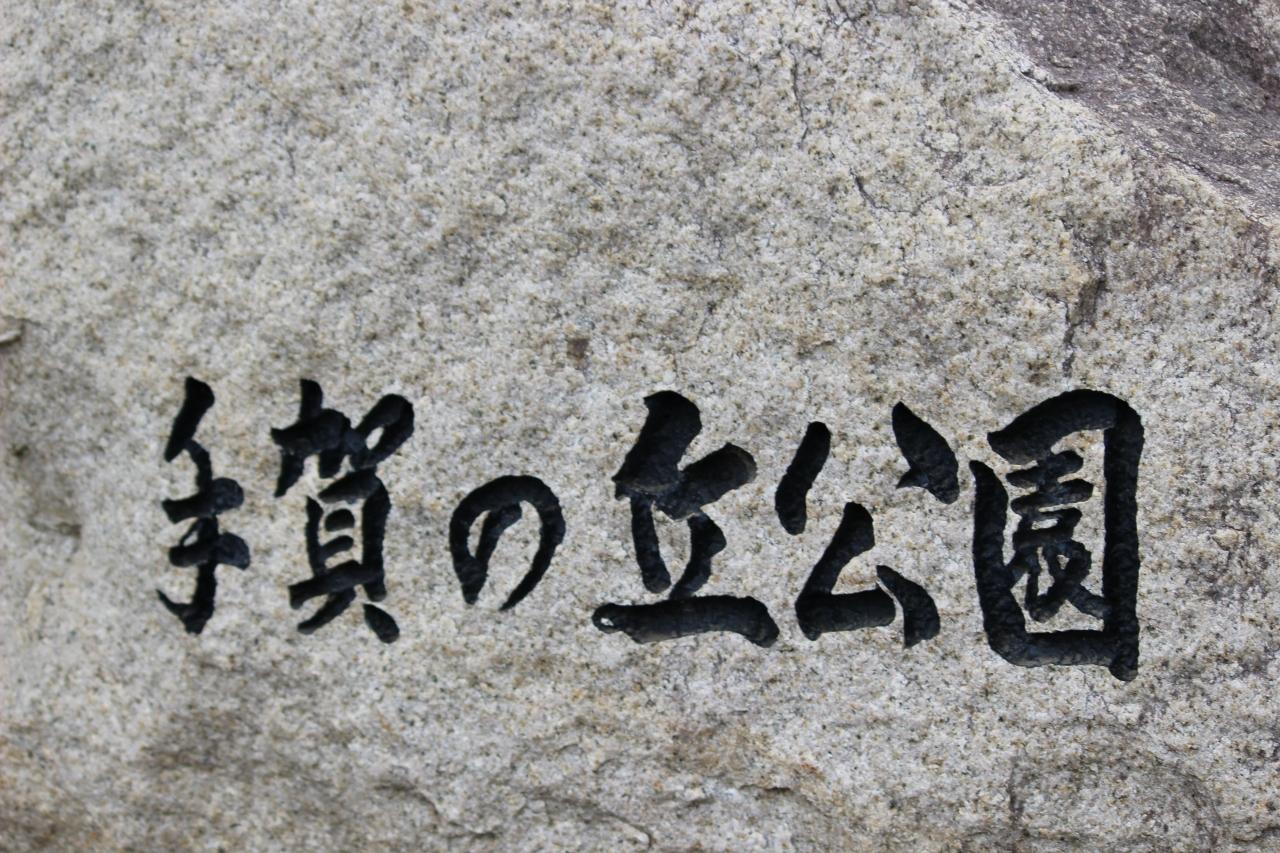 手賀の丘公園